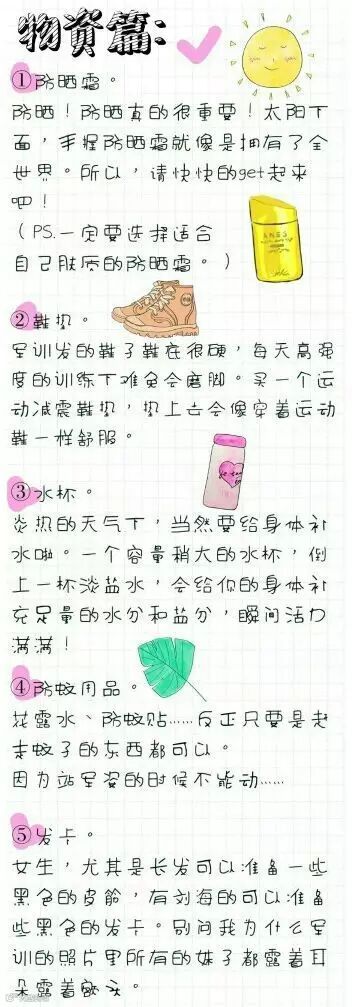 物资篇:
①防晒霜。
防晒！防晒真的很重要！太阳下
面，手握防晒霜就像是拥有了全
世界。所以，请快快的get起来
吧！
（PS.一定要选择适合
自己肤质的防晒霜。）
ANES
②鞋垫。
军训发的鞋子鞋底很硬，每天高强
度的训练下难免会磨脚。买一个运
动减震鞋垫，垫上去会像穿着运动
鞋一样舒服。
③水杯。
炎热的天气下，当然要给身体补
水啦。一个容量稍大的水杯，倒
上一杯淡盐水，会给你的身体补
充足量的水分和盐分，瞬间活力
满满！
④防蚊用品。
花露水、防蚊贴……反正只要是赶
走蚊子的东西都可以。
因为站军姿的时候不能动……
⑤发卡。
女生，尤其是长发可以准备一些
黑色的皮筋，有刘海的可以准备
些黑色的发卡。别问我为什么军
训的照片里所有的妹子都露着耳
朵露着额头。